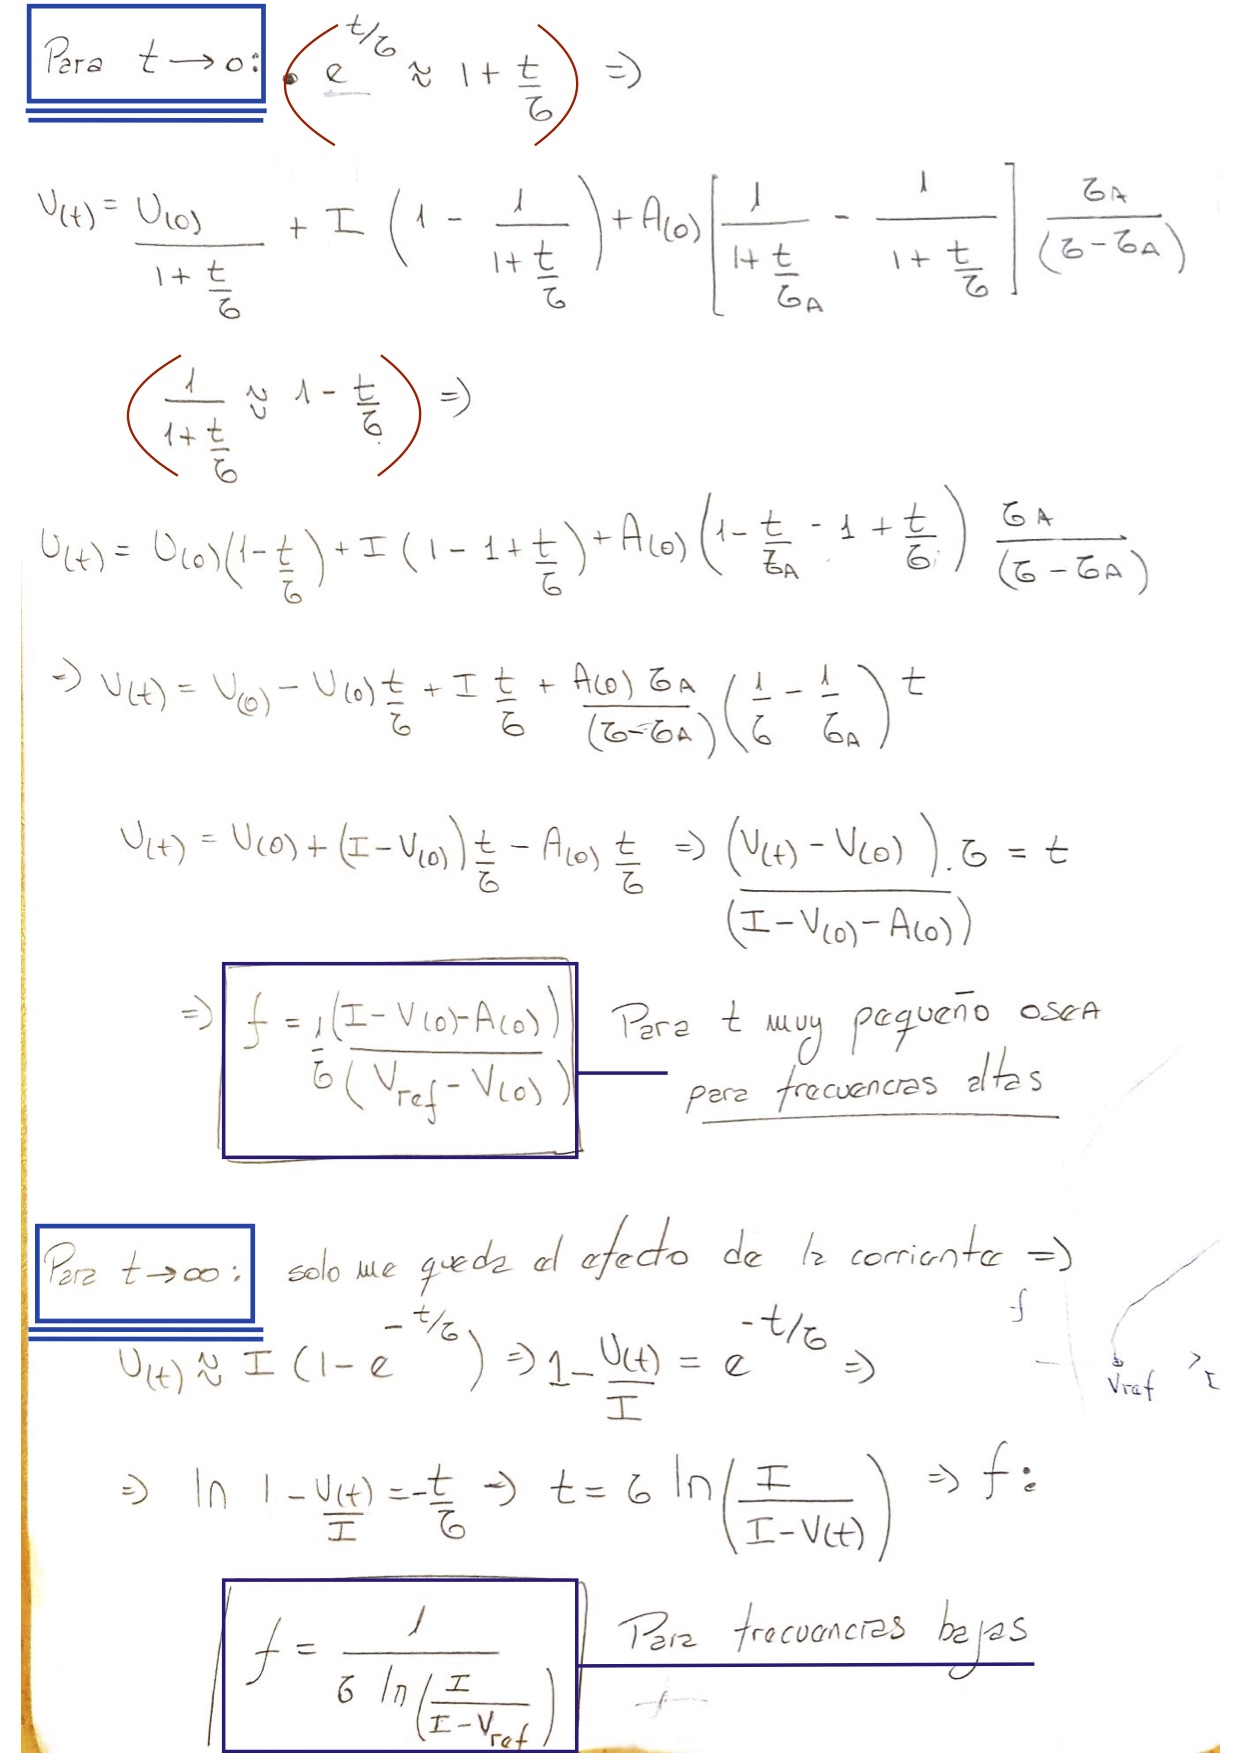 Para t → 0: ( • e^{t/τ} ≈ 1 + t/τ ) ⇒
V(t) = V(0)/(1 + t/τ) + I (1 - 1/(1 + t/τ)) + A(0) [1/(1 + t/τA) - 1/(1 + t/τ)] τA/(τ - τA)
( 1/(1 + t/τ) ≈ 1 - t/τ ) ⇒
V(t) = V(0)(1 - t/τ) + I (1 - 1 + t/τ) + A(0) (1 - t/τA - 1 + t/τ) τA/(τ - τA)
⇒ V(t) = V(0) - V(0) t/τ + I t/τ + A(0) τA/(τ - τA) (1/τ - 1/τA) t
V(t) = V(0) + (I - V(0)) t/τ - A(0) t/τ ⇒ (V(t) - V(0))/(I - V(0) - A(0)) . τ = t
⇒ f = 1/τ (I - V(0) - A(0))/(Vref - V(0)) Para t muy pequeño osea
para frecuencias altas
Para t → ∞: solo me queda el efecto de la corriente ⇒
V(t) ≈ I (1 - e^{-t/τ}) ⇒ 1 - V(t)/I = e^{-t/τ} ⇒
f
Vref > I
⇒ ln 1 - V(t)/I = -t/τ ⇒ t = τ ln(I/(I - V(t))) ⇒ f:
f = 1/(τ ln(I/(I - Vref))) Para frecuencias bajas